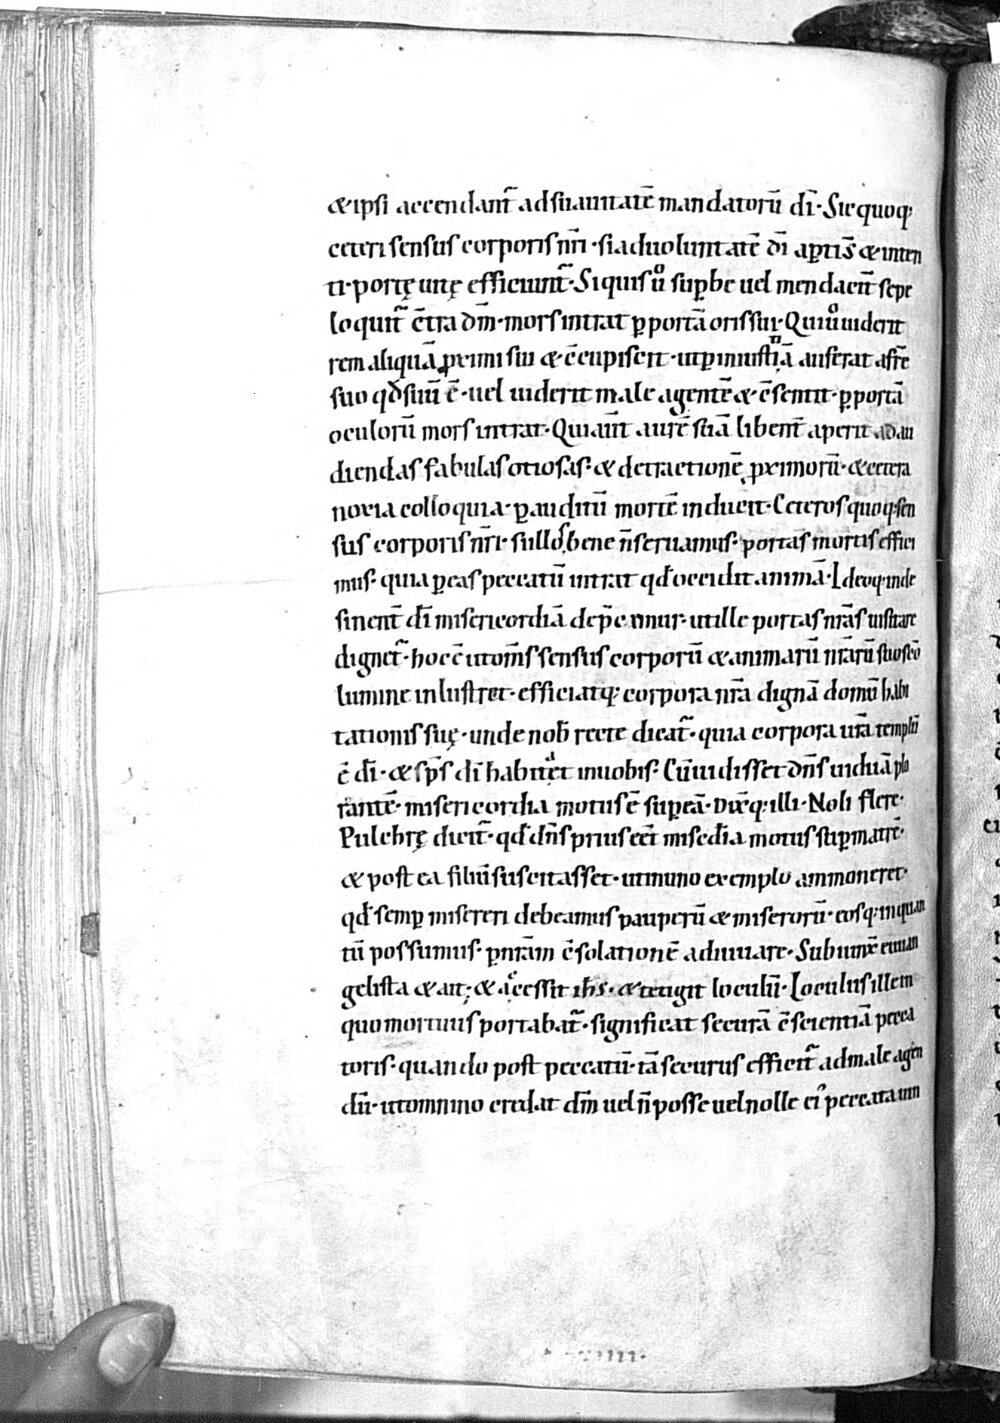 &ipsi accendant᷑ adsuauitatē mandatorū dī· Sicquoq;
ceteri sensus corporis nr̄i· siaduoluntatē dī aꝑtis̄ & inten
ti· portę uitę efficiunt᷑· Siquis ů suꝑbe uel mendacit̄ sepe
loquit᷑ c̄tra dm̄· mors intrat ꝑportā oris sui· Qui ů uiderit
rem aliquā ꝓximi sui & c̄cupiscit· ut ꝑiniustitiā auferat afr̄e
suo qd̄ suū ē· uel uiderit male agentē & c̄sentit· ꝑportā
oculorū mors intrat· Qui aut̄ aurē suā libent̄ aperit adau
diendas fabulas otiosas· & detractionē ꝓximorū· & cetera
noxia colloquia· ꝑauditū mortē inducit· Ceteros quoq; sen
sus corporis nr̄i· si illos bene n̄ seruamus· portas mortis effici
mus· quia ꝑeas peccatū intrat qd̄ occidit animā· Ideoq; inde
sinent̄ dī misericordiā dep̄cemur· ut ille portas nr̄as uisitare
dignet᷑· hoc ē utom̄s sensus corporū & animarū nr̄arū suo sc̄o
lumine inlustret· efficiatq; corpora nr̄a dignā domū habi
tationis suę· unde nob̄ recte dicat᷑· quia corpora ur̄a templū
ē dī· & sp̄s dī habitat inuobis· Cū uidisset dn̄s uiduā plo
rantē· misericordia motus ē suꝑeā· Dix̄q; illi· Noli flere·
Pulchrę dicit᷑· qd̄ dn̄s prius eēt mise᷑dia motus suꝑmatrē·
& post ea filiū suscitasset· ut inuno exemplo ammoneret·
qd̄ semꝑ misereri debeamus pauperū & miserorū· eosq; inquan
tū possumus· ꝑnr̄am c̄solationē adiuuare· Subiunx̄ euuan
gelista & ait; & accessit ih̄s· & tetigit loculū· Loculus ille in
quo mortuus portabat᷑· significat securā c̄scientiā pecca
toris· quando post peccatū tā securus efficit᷑ admale agen
dū· utomnino credat dm̄ uel n̄ posse uel nolle ei᷒ peccata uin